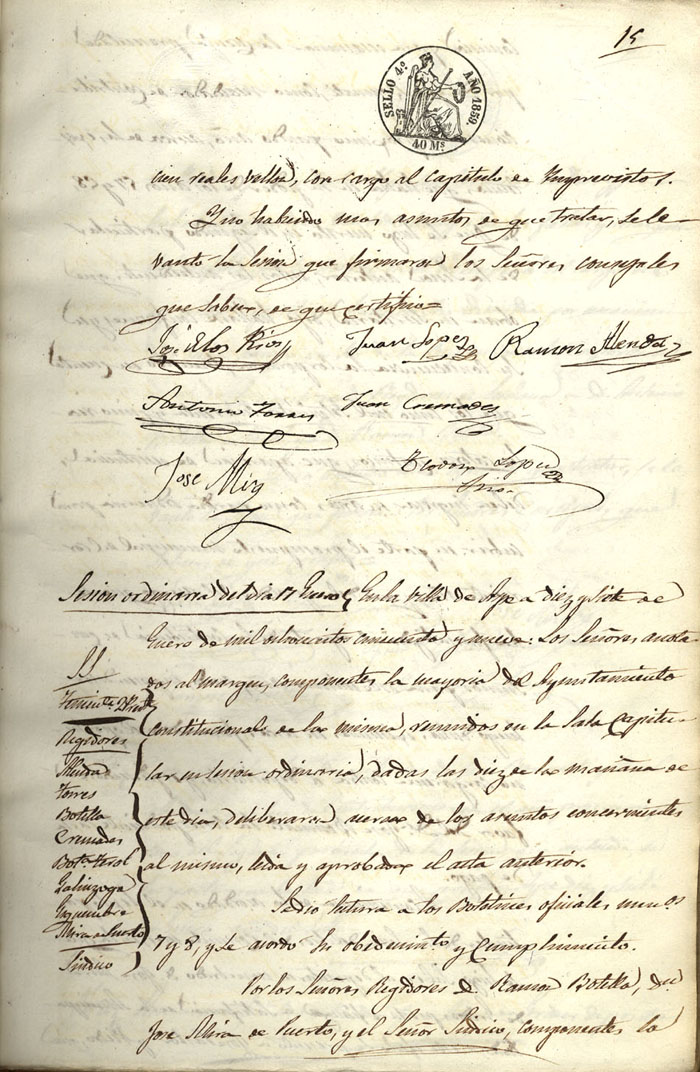 15
SELLO 4º. AÑO 1859.
40 Ms
cien reales vellon, con cargo al capitulo de Imprevistos.
Y no habiendo mas asuntos de que tratar, se le-
vantó la sesion que firmaron los Señores concejales
que saben, de que certifico=
José de los Rios
Juan Lopez
Ramon Alenda
Antonio Torres
Juan Cremades
Jose Mira
Teodoro Lopez
Srio.
Sesion ordinaria del dia 17 Enero
En la Villa de Aspe a diez y siete de
Enero de mil ochocientos cincuenta y nueve: Los Señores anota-
dos al margen, componentes la mayoria del Ayuntamiento
constitucional de la misma, reunidos en la Sala Capitu-
lar en sesion ordinaria, dadas las diez de la mañana de
este dia, deliberaron acerca de los asuntos concernientes
al mismo, leida y aprobada el acta anterior.
SS
Teniente
Regidores
Torres
Botella
Cremades
Mira de Puerto
Sindico
Se dio lectura a los Boletines oficiales numeros
7 y 8, y se acordó su obedecimiento y cumplimiento.
Por los Señores Regidores Ramon Botella, Don
Jose Mira de Puerto, y el Señor Sindico, componentes la